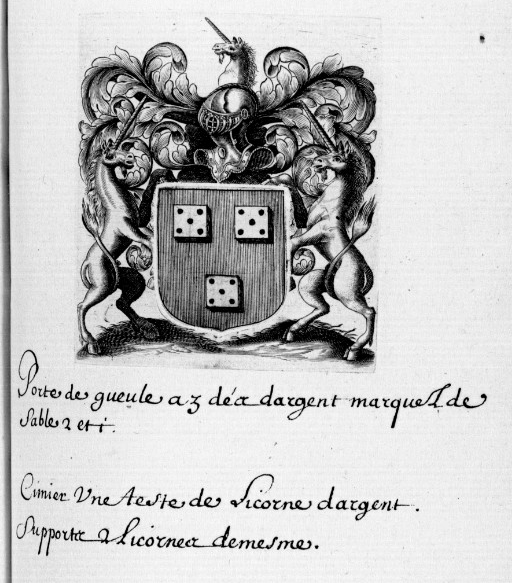 Porte de gueule a 3 déz dargent marquez de
Sable 2 et i.
Cimier Vne teste de Licorne dargent.
Supportz 2 Licornez demesme.